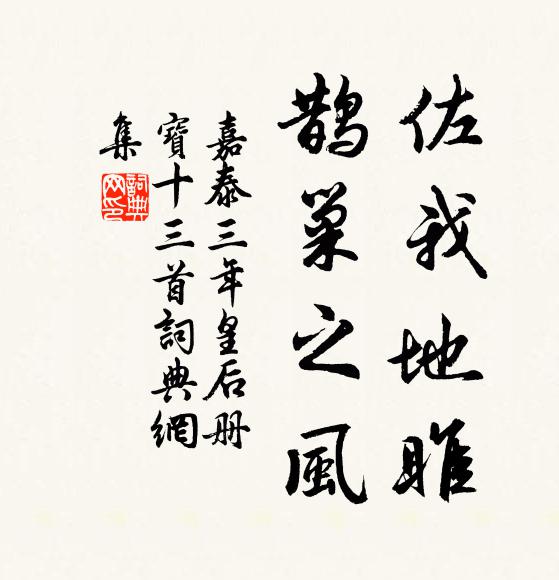 佐我地睢
鹊巢之風
嘉泰三年皇后册
寶十三首詞典網
集
詞典網印